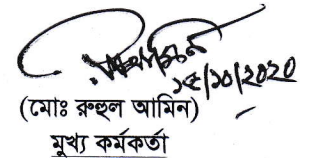 ১৫/১০/২০২০
(মোঃ রুহুল আমিন)
মুখ্য কর্মকর্তা